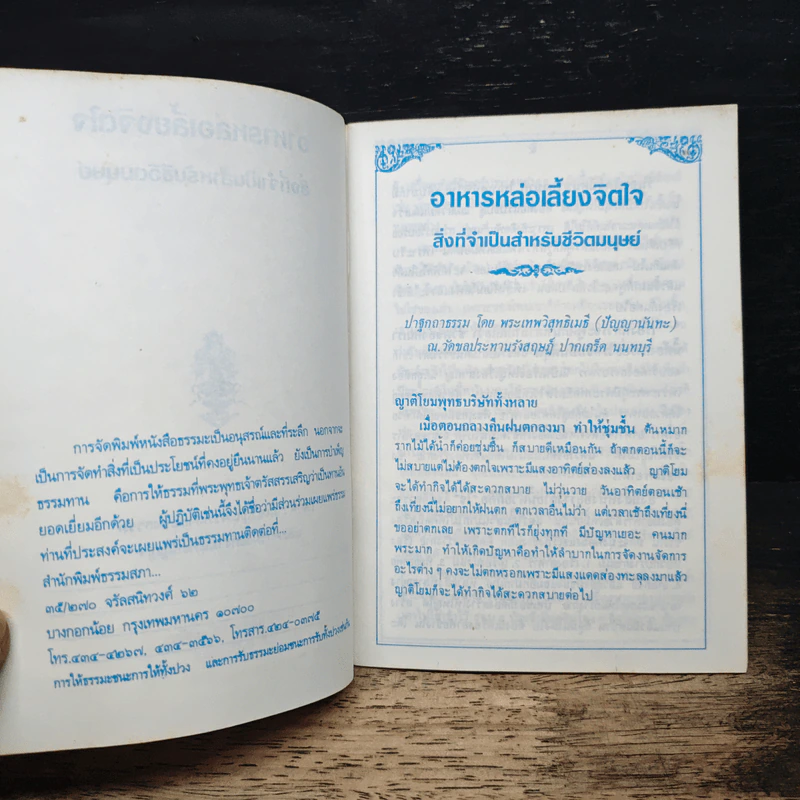 การจัดพิมพ์หนังสือธรรมะเป็นอนุสรณ์และที่ระลึก นอกจากจะ
เป็นการจัดทำสิ่งที่เป็นประโยชน์ที่คงอยู่ยืนนานแล้ว ยังเป็นการบำเพ็ญ
ธรรมทาน คือการให้ธรรมที่พระพุทธเจ้าตรัสสรรเสริญว่าเป็นทานอัน
ยอดเยี่ยมอีกด้วย ผู้ปฏิบัติเช่นนี้จึงได้ชื่อว่ามีส่วนร่วมเผยแพร่ธรรม
ท่านที่ประสงค์จะเผยแพร่เป็นธรรมทานติดต่อที่...
สำนักพิมพ์ธรรมสภา...
๓๕/๒๗๐ จรัลสนิทวงศ์ ๖๒
บางกอกน้อย กรุงเทพมหานคร ๑๐๗๐๐
โทร.๔๓๔-๔๒๖๗, ๔๓๔-๓๕๖๖, โทรสาร.๔๒๔-๐๓๗๕
การให้ธรรมะชนะการให้ทั้งปวง และการรับธรรมะย่อมชนะการรับทั้งปวงเช่นกัน
อาหารหล่อเลี้ยงจิตใจ
สิ่งที่จำเป็นสำหรับชีวิตมนุษย์
ปาฐกถาธรรม โดย พระเทพวิสุทธิเมธี (ปัญญานันทะ)
ณ.วัดชลประทานรังสฤษฎ์ ปากเกร็ด นนทบุรี
ญาติโยมพุทธบริษัททั้งหลาย
เมื่อตอนกลางคืนฝนตกลงมา ทำให้ชุ่มชื้น ต้นหมาก
รากไม้ได้น้ำก็ค่อยชุ่มชื้น ก็สบายดีเหมือนกัน ถ้าตกตอนนี้ก็จะ
ไม่สบายแต่ไม่ต้องตกใจเพราะมีแสงอาทิตย์ส่องลงแล้ว ญาติโยม
จะได้ทำกิจได้ได้สะดวกสบาย ไม่วุ่นวาย วันอาทิตย์ตอนเช้า
ถึงเที่ยงนี้ไม่อยากให้ฝนตก ตกเวลาอื่นไม่ว่า แต่เวลาเช้าถึงเที่ยงนี่
ขออย่าตกเลย เพราะตกทีไรก็ยุ่งทุกที มีปัญหาเยอะ คนมาก
พระมาก ทำให้เกิดปัญหาคือทำให้ลำบากในการจัดงานจัดการ
อะไรต่าง ๆ คงจะไม่ตกหรอกเพราะมีแสงแดดส่องทะลุลงมาแล้ว
ญาติโยมก็จะได้ทำกิจได้สะดวกสบายต่อไป